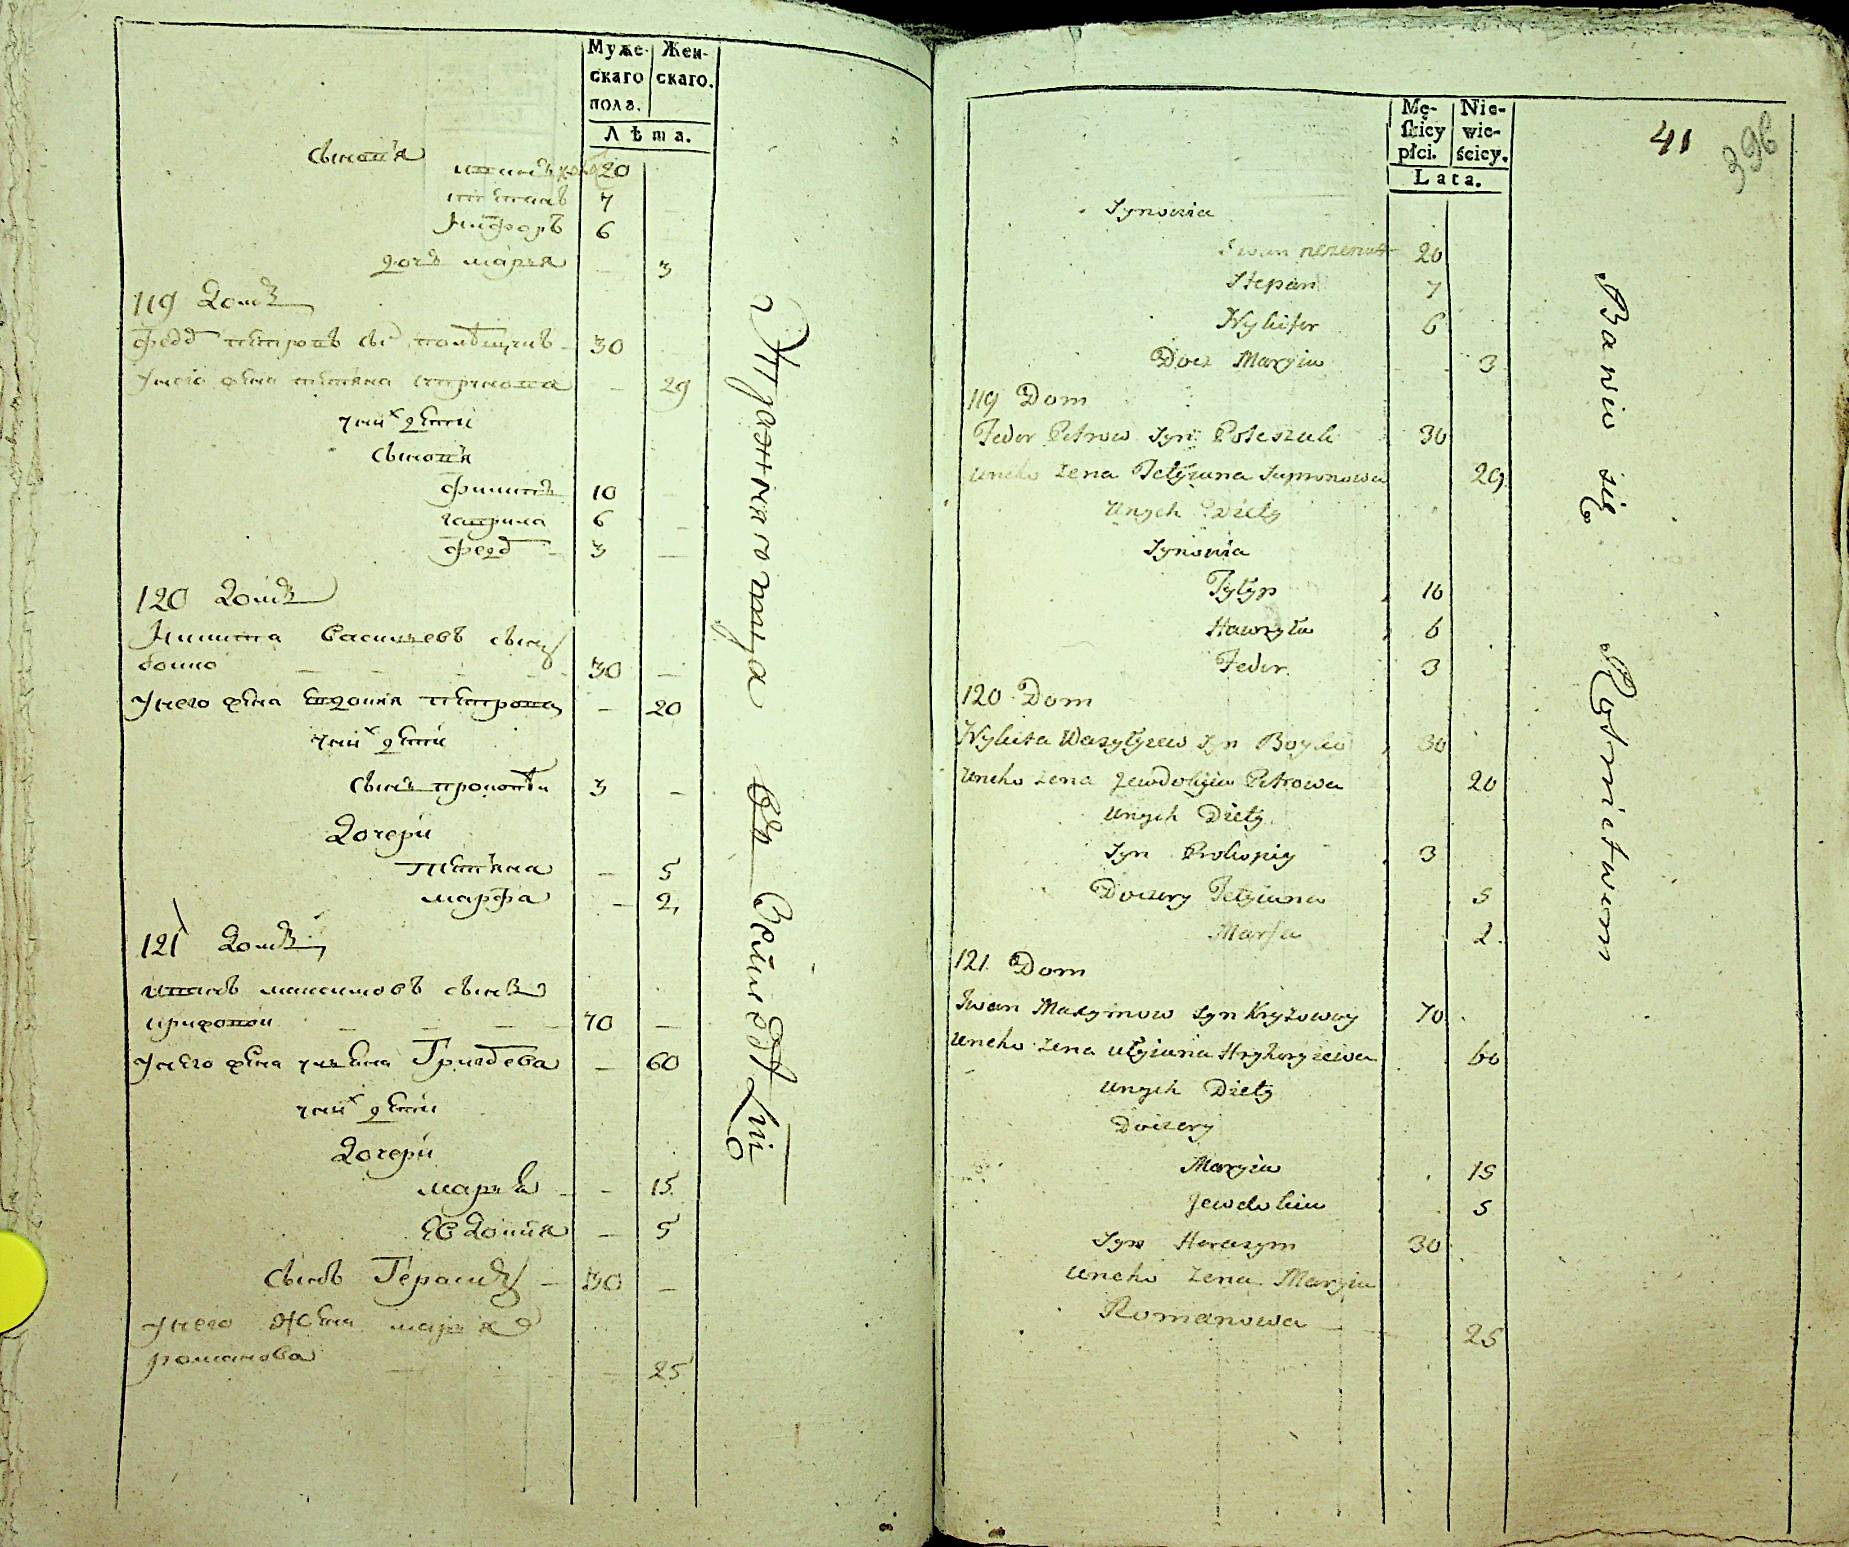 Муже-
скаго
пола.
Жен-
скаго.
Лѣта.
Сыновья
20
степанъ 7
Никифоръ 6
дочь марья 3
119 Домъ
30
У него жена татьяна 29
У них дети
Сыновья
филипъ 10
гаврила 6
федоръ 3
120 Домъ
Никита Васильевъ сынъ
бойко 30
У него жена евдокия петрова 20
У них дети
Сынъ прокопѣй 3
Дочери
татьяна 5
марфа 2
121 Домъ
иванъ максимовъ сынъ
крижовой 70
У него жена ульяна Григорьева 60
У них дети
Дочери
марья 15
Евдокия 5
Сынъ Герасимъ 30
У него Жена марья
романова 25
Упражняются въ Земледѣлии
Mę-
skiey
płci.
Nie-
wie-
ściey.
Lata.
41
396
Synowia
Iwan nezenat 20
Stepan 7
Nykifer 6
Docz Maryia 3
119 Dom
Fedor Petrow Syn Poleszuk 30
uneho zena Tetyiana Symonowa 29
Unych Diety
Synowia
Pylyp 10
Hawryło 6
Fedor 3
120 Dom
Nykita Wasylyiew Syn Boyko 30
Uneho zena Jewdokyia Petrowa 20
Unych Diety
Syn Prokopiy 3
Doczery Tetyiana 5
Marfa 2
121 Dom
Iwan Maxymow Syn Kryżowoy 70
Uneho zena Ulyiana Hryhoryiewa 60
Unych Diety
Doczery
Maryia 15
Jewdokia 5
Syn Harasym 30
Uneho zena Maryia
Romanowa 25
Bawio się Rolnictwem